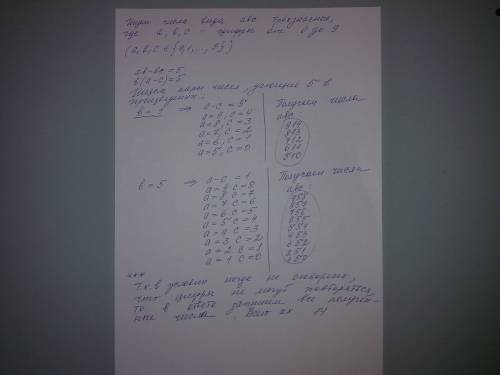 Ищем числа вида abc трехзначное,
где a, b, c - цифры от 0 до 9
(a, b, c ∈ {0,1,...,9})
ab-bc = 5
b(a-c) = 5
Ищем пары чисел, дающие 5 в
произведении:
b = 1 ⇒ a-c = 5
a=9, c=4
a=8, c=3
a=7, c=2
a=6, c=1
a=5, c=0
Получаем числа
abc:
914
813
712
611
510
b = 5 ⇒ a-c = 1
a=9 c=8
a=8 c=7
a=7 c=6
a=6 c=5
a=5 c=4
a=4 c=3
a=3 c=2
a=2 c=1
a=1 c=0
Получаем числа
abc:
958
857
756
655
554
453
352
251
150
Т.к. в условии нигде не оговорено,
что цифры не могут повторяться,
то в ответе запишем все получен-
ные числа. Всего их 14